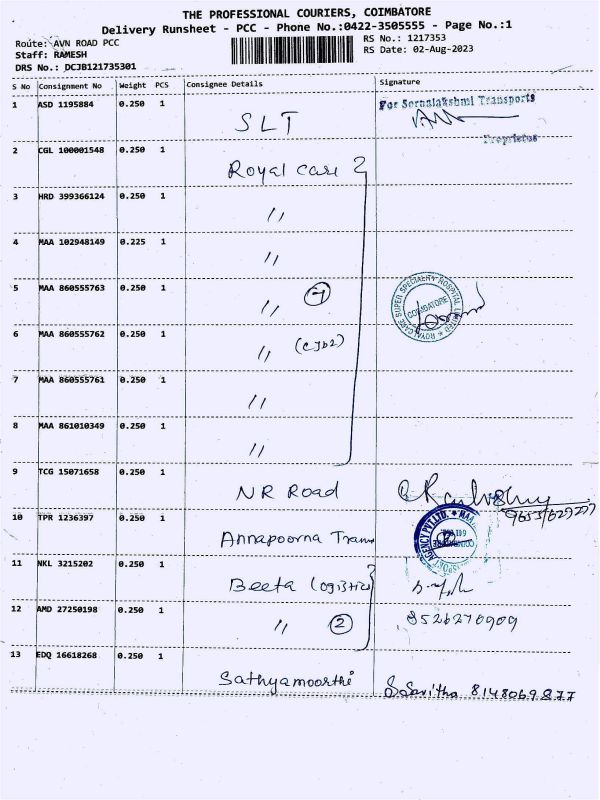 THE PROFESSIONAL COURIERS, COIMBATORE
Delivery Runsheet - PCC - Phone No.:0422-3505555 - Page No.:1
Route: AVN ROAD PCC
RS No.: 1217353
Staff: RAMESH
RS Date: 02-Aug-2023
DRS No.: DCJB121735301
S No Consignment No Weight PCS Consignee Details Signature
1 ASD 1195884 0.250 1
For Sornalakshmi Transports
SLT
Proprietor
2 CGL 100001548 0.250 1
Royal care
3 HRD 399366124 0.250 1
〃
4 MAA 102948149 0.225 1
〃
5 MAA 860555763 0.250 1
〃 7
ROYAL CARE SUPER SPECIALITY HOSPITAL LIMITED
COIMBATORE
6 MAA 860555762 0.250 1
〃 (CJb2)
7 MAA 860555761 0.250 1
〃
8 MAA 861010349 0.250 1
〃
9 TCG 15071658 0.250 1
NR Road
10 TPR 1236397 0.250 1
Annapoorna Trans
AGENCY PVT LTD.
11 NKL 3215202 0.250 1
Beeta Logistics
12 AMD 27250198 0.250 1
〃 2
9526270909
13 EDQ 16618268 0.250 1
Sathyamoorthi
S. Savitha 8148069877